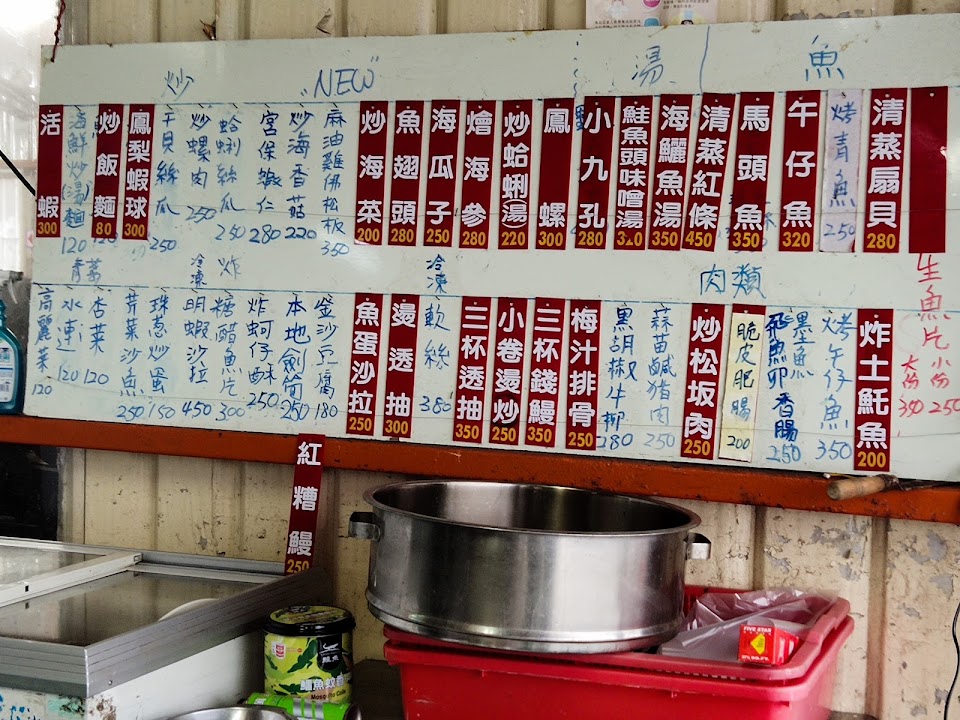 炒
"NEW"
湯
魚
活蝦 300
海鮮炒(湯)麵 120
炒飯麵 80
鳳梨蝦球 300
干貝絲瓜 250
炒螺肉 250
蛤蜊絲瓜 250
宮保蝦仁 280
炒海香菇 220
麻油雞佛松板 350
炒海菜 200
魚翅頭 280
海瓜子 250
燴海參 280
炒蛤蜊(湯) 220
鳳螺 300
小九孔 280
鮭魚頭味噌湯
海鱺魚湯 350
清蒸紅條 450
馬頭魚 350
午仔魚 320
烤青魚 250
清蒸扇貝 280
青菜
冷凍
炸
冷凍
肉類
高麗菜 120
水蓮 120
杏菜 120
芹菜沙魚 250
珠蔥炒蛋 150
明蝦沙拉 450
糖醋魚片 300
炸蚵仔酥 250
本地劍筍 250
金沙豆腐 180
魚蛋沙拉 250
燙透抽 300
軟絲 380
三杯透抽 350
小卷燙炒 250
三杯錢鰻 350
梅汁排骨 250
黑胡椒牛柳 280
蒜苗鹹豬肉 250
炒松坂肉 250
脆皮肥腸 200
飛魚卵香腸 250
墨魚
烤午仔魚 350
炸土魠魚 200
生魚片
大份 350
小份 250
紅糟鰻 250
FIVE STAR